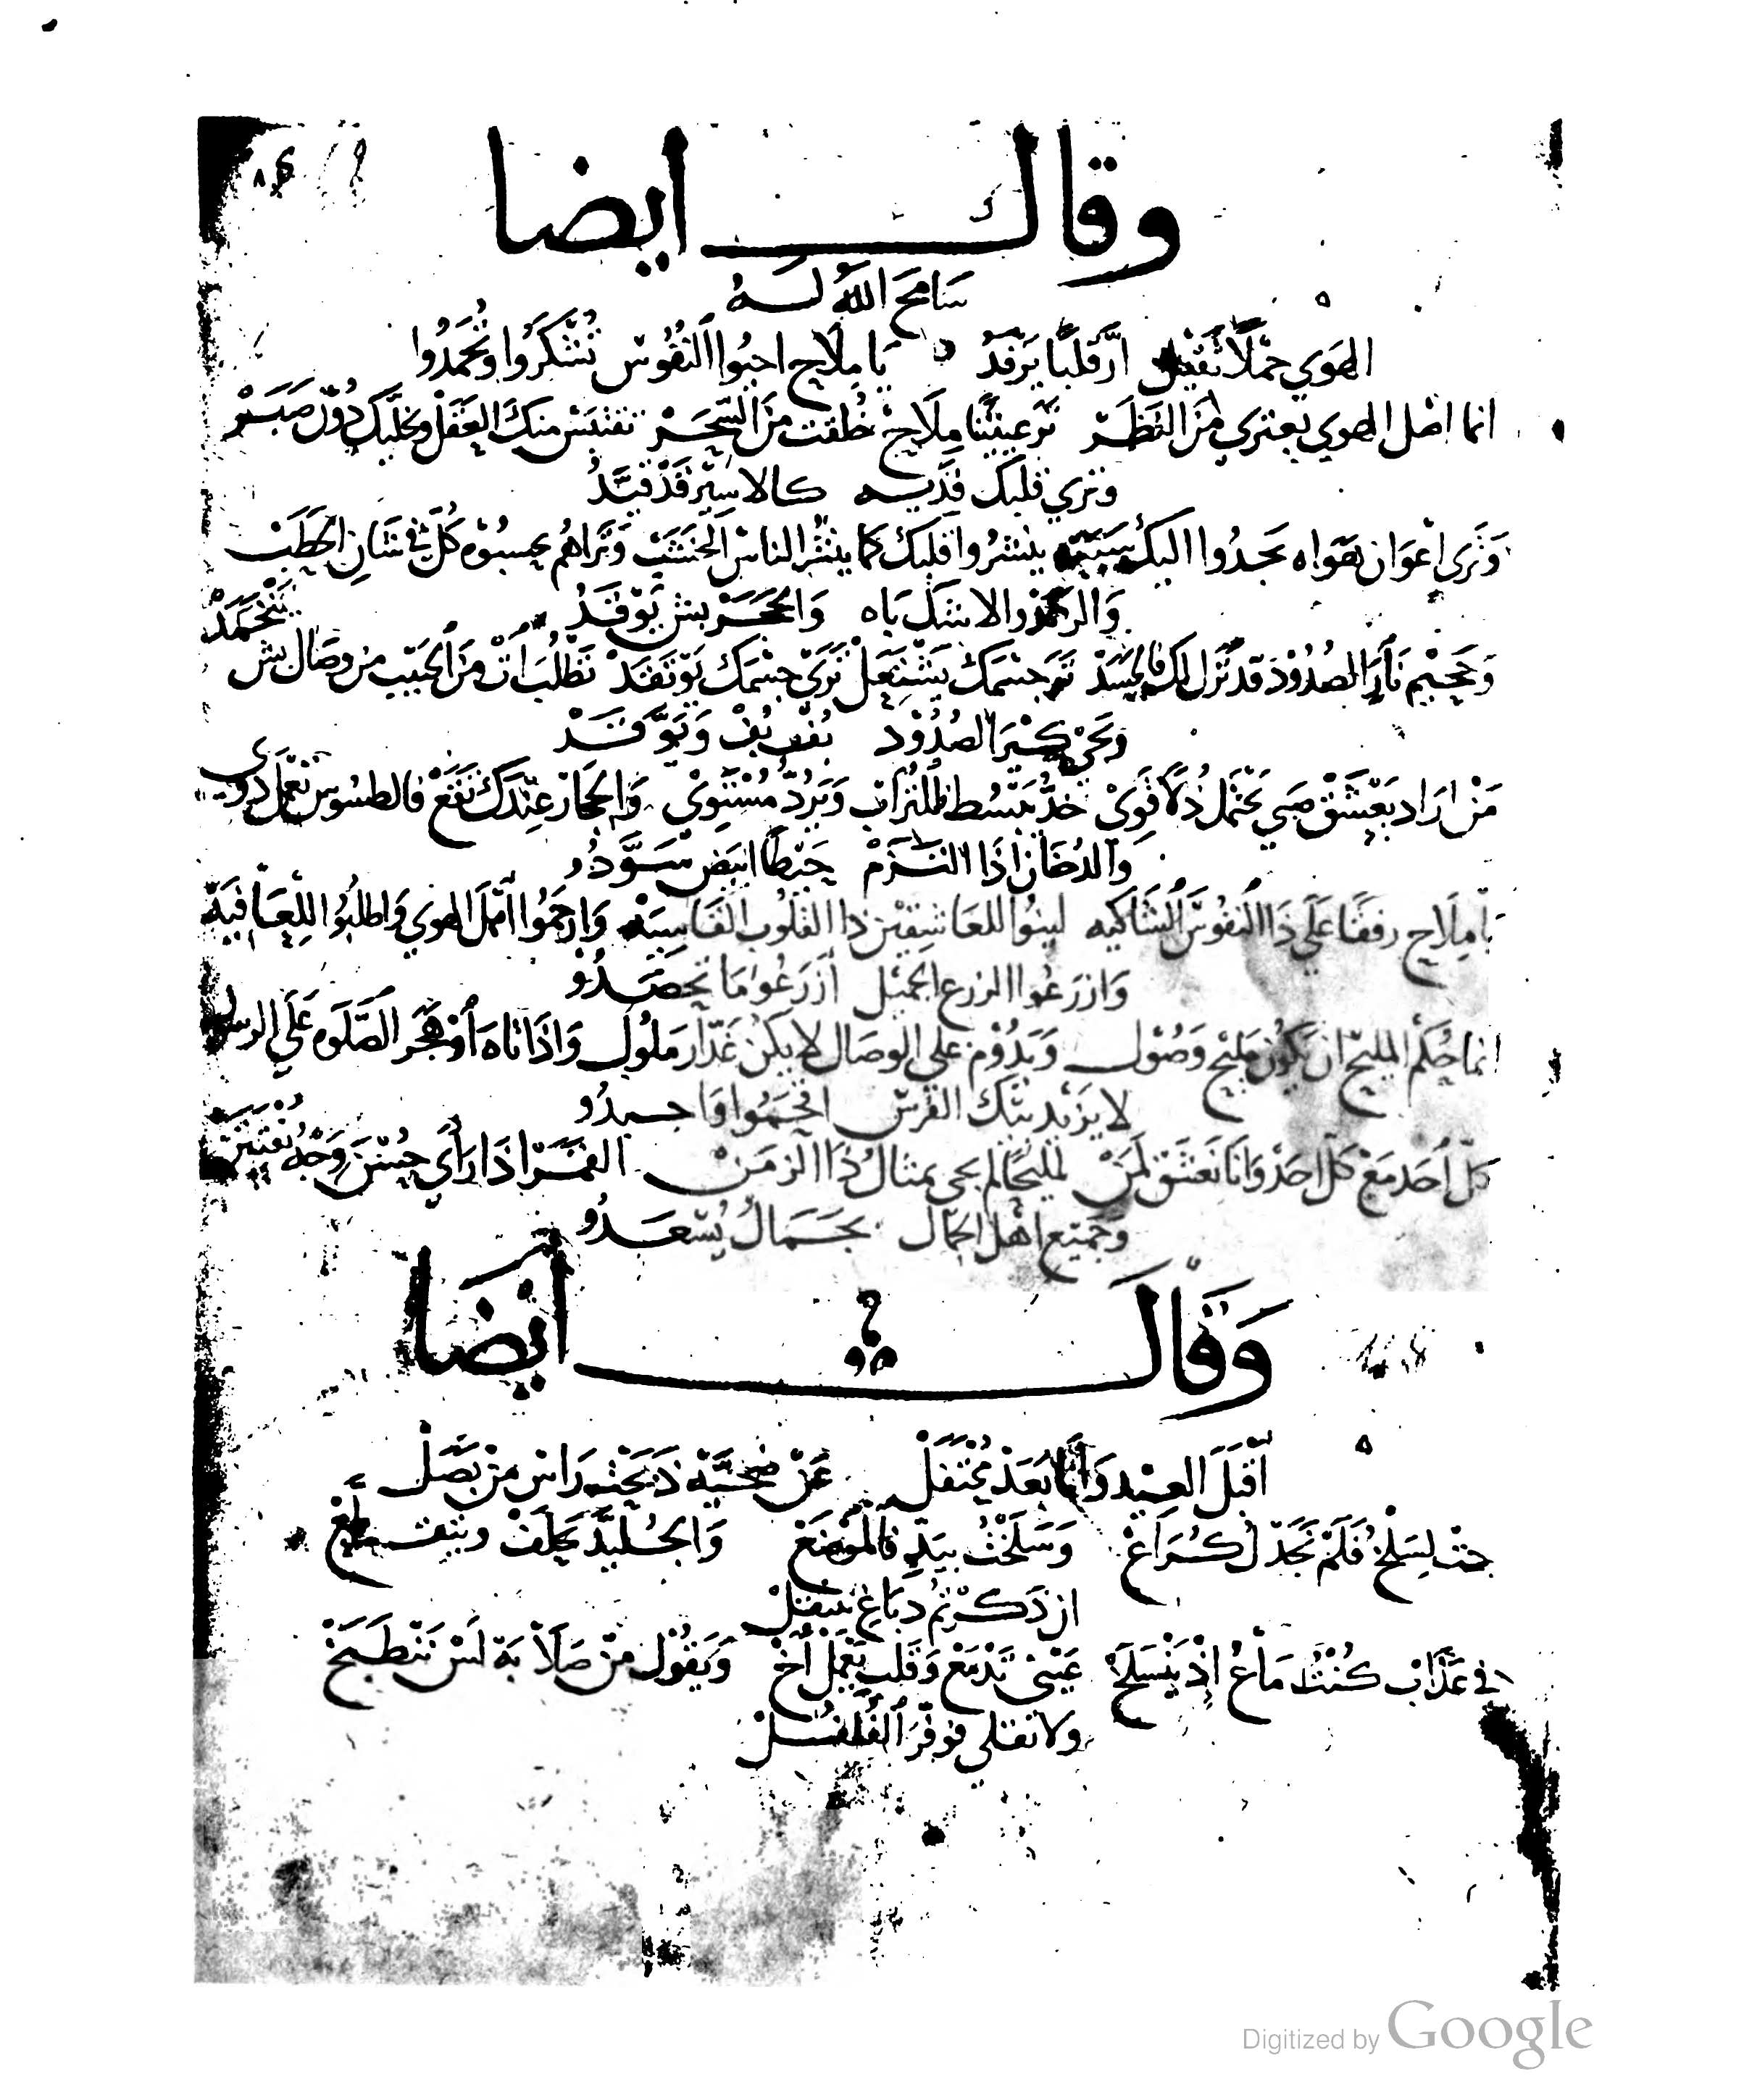 وقال ايضا
سَامَحَ اللهُ لَهُ
الهَوي حَملًا ثَقيل ازَّ قَلبًا يَرفدُ يَا مِلَاح احيُوا النفُوسْ تُشْكَرُوا وتُحْمَدُوا
انما اصْل الهوي يعتري مِنَ النَظَرْ تَرَ عينينًا مِلَاحْ خُلقت مِنَ السَّحَرْ تفتبسْ منكَ العَقَلْ وتخلّيك دُون صَبَرْ
وترَي قلبك فِدَيه كالاسِيْر قَدْ قيَّدُ
وَتَرَى اعْوَان هَوَاه يَجدُوا اليكْ سَبَبْ ينشرُوا قلبك كما ينشُر الناسْ الخَشَبْ وَتَراهُم يحسبُوْه كُلّ في شَانِ الحَطَبْ
وَالرمُوْ والاشكَ بَاه وَالجَمَرْ بشْ يَوْقَدُ
وَجَحِيْم نَارَ الصُدُوْد قد نُزل لك فالجسَدْ تَرَ جسْمَكْ يَشْتِعَلْ تَرَىْ جسْمَك يَوْتَقَدْ تَطْلُبَ اتْ مِنَ الحَبيّب من وِصَال بش يَنْخَمَدْ
وَيَجيْ كِيْرَ الصُدُوْد يُنْفُفيْ وَيَوَّقَدْ
مَنْ ارَاد يَعْشَقْ صَبي يَحْتمَل ذُلّا قَوِيْ خدُّ يَبْسُط للتُرَابْ وَيَرُدُّ مُسْتَوِيْ وَالحجَارْ عِنّدَكْ تقَعْ فالطسُوسْ تعْمَل دَوِي
وَالدُخَان اذَا التَزَمْ حَيْطًا ابيَضْ سَوَّدُ
يَا مِلَاح رفقًا عَلَي ذَا النفُوسَ الشَاكيه لينُوا للعَاشِقيْن ذا القلُوب القَاسِيَة وَارحَمُوا اهْلَ الهوي وَاطلبُوا للِعَافيَة
وَازرَعُوا الزرع الجميْل ازرَعُوا مَا تحصَدُو
انما حُكم المليّح ان يَكُون مَليْح وَصُوْل وَيَدُوْم علي الوصَال لا يكُن غَدّار مَلُول وَاذَا تَاه اوْ هَجَر الصَّلَوه عَلَي الرسول
لا يزيْد بتكَ القرسْ اقحمُوا وَاجهدُو
كلّ احَد مَعْ كلّ احَدْ وَانَا نَعشَقْ لمَنْ لمليحًا لم يجي بمثالُ ذَا الزمَنْ القمَرْ اذَا رَاَي حُسْنَ وَجهُ يُفْتَتَنْ
وَجَميْع اهْل الجمَال بجَمَالُ يُسْعَدُو
وَقَالَ ايْضَا
اَقْبَلَ العِيْد وَانَا بَعَدْ مُحْتَفلْ عَنْ ضحيَّهْ ذَبَحْتْ رَاسْ مِنْ بَصَلْ
جيْت لِسَلْخُ فَلَمْ نَجَدْ لُ كُرَاعْ وَسَلَخْتُ بِيَدِّ فالمَوْضَعْ وَالجُليَّدْ تَحِلَفْ
ان ذَكَرْتُم دِبَاغْ يتْفتلْ
في عَذَابْ كُنْتُ مَاعُ اذْ يَنْسَلَخْ عَيْنيْ تَدْمَعْ وَقَلبِ يَعْمَل اَخْ وَيَقُول مِنْ صَلَابَهْ لَسْ تَنْطَبَخْ
ولا تقلي فوقَ الفُلفُلْ
Digitized by Google